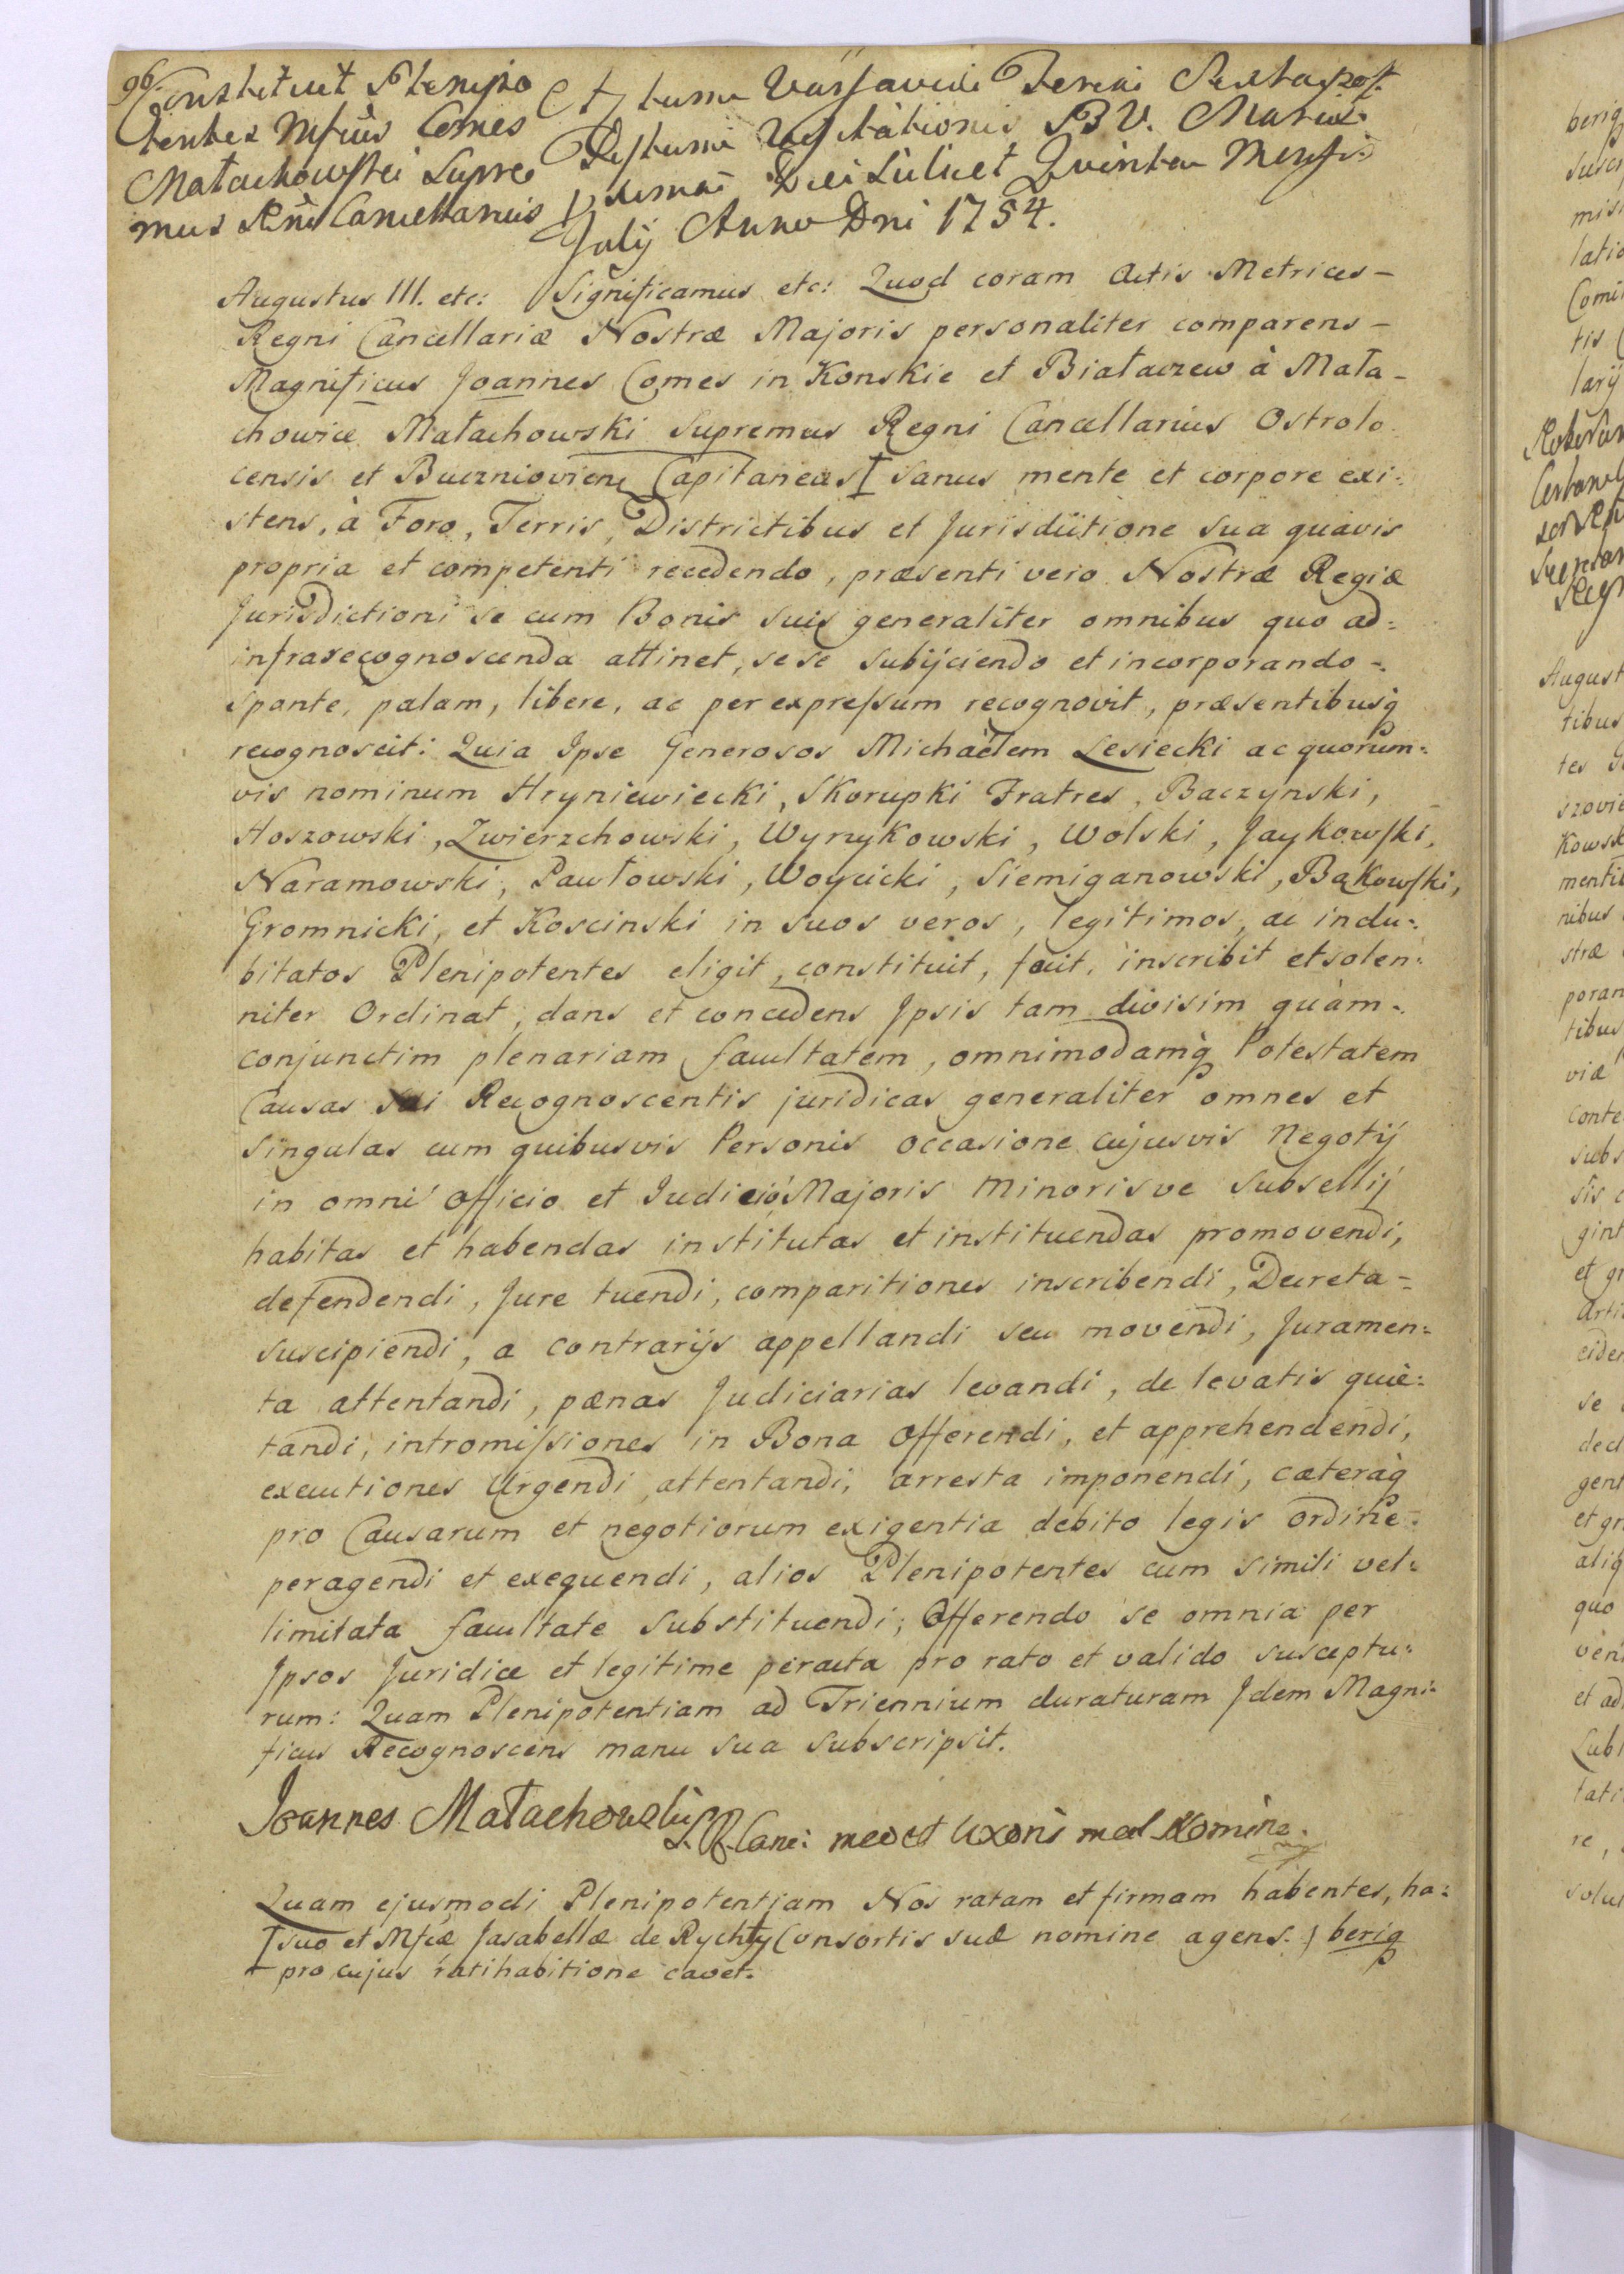 96.
Constituit Plenipo
tentes Mfcus Comes
Małachowski Supre
mus Rni Cancellarius
Actum Varsaviae Feria Sexta post
Festum Visitationis B V. Mariae
proxima Die scilicet Quinta Mensis
July Anno Dni 1754.
Augustus III. etc: Significamus etc: Quod coram Actis Metrices -
Regni Cancellariæ Nostræ Majoris personaliter comparens -
Magnificus Joannes Comes in Konskie et Białaczew à Mała -
chowice Małachowski Supremus Regni Cancellarius Ostrolo
censis et Buczniovien Capitaneus I sanus mente et corpore exi:
stens, à Foro, Terris, Districtibus et Jurisdictione sua quavis
propria et competenti recedendo, præsenti vero Nostræ Regiæ
Jurisdictioni se cum Bonis suis generaliter omnibus quo ad:
infrarecognoscenda attinet, sese subijciendo et incorporando -:
spante, palam, libere, ac per expressum recognovit, præsentibusq
recognoscit: Quia Ipse Generosos Michaëlem Lesiecki ac quorum:
vis nominum Hryniewiecki, Skorupki Fratres, Baczynski,
Hoszowski, Zwierzchowski, Wyrzykowski, Wolski, Jaykowski,
Naramowski, Pawłowski, Woycicki, Siemiganowski, Bąkowski,
Gromnicki, et Koscinski in suos veros, legitimos, ac indu:
bitatos Plenipotentes eligit, constituit, facit, inscribit et solen:
niter Ordinat, dans et concedens Ipsis tam divisim quàm -:
conjunctim plenariam facultatem, omnimodamq Potestatem
Causas sui Recognoscentis juridicas generaliter omnes et
singulas cum quibusvis Personis occasione cujusvis Negotij
in omni Officio et Judicio Majoris Minorisve Subsellij
habitas et habendas institutas et instituendas promovendi,
defendendi, Jure tuendi, comparitiones inscribendi, Decreta -
suscipiendi, a contrarijs appellandi seu movendi, Juramen:
ta attentandi, pænas Judiciarias levandi, de levatis quie:
tandi, intromissiones in Bona Offerendi, et apprehendendi,
executiones Urgendi, attentandi, arresta imponendi, cæteraq
pro Causarum et negotiorum exigentia debito legis ordine -
peragendi et exequendi, alios Plenipotentes cum simili vel -
limitata facultate substituendi; Offerendo se omnia per
Ipsos Juridice et legitime peracta pro rato et valido susceptu:
rum: Quam Plenipotentiam ad Triennium duraturam Idem Magni:
ficus Recognoscens manu sua subscripsit.
Joannes Małachowski S.R. Canc: meo et Uxoris meæ Nomine.
Quam ejusmodi Plenipotentiam Nos ratam et firmam habentes, ha:
I suo et Mfcæ Jasabellæ de Rychty Consortis suæ nomine agens.) beriq
pro cujus ratihabitione cavet.